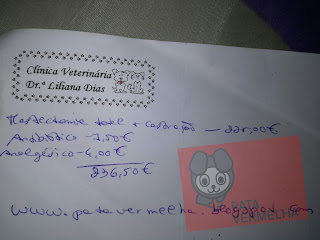 Clínica Veterinária
Dr.ª Liliana Dias
Mastectomia total + Castração — 225,00€
Antibiótico - 7,50€
Analgésico - 4,00€
236,50€
www.patavermelha.blogspot.com
PATA
VERMELHA